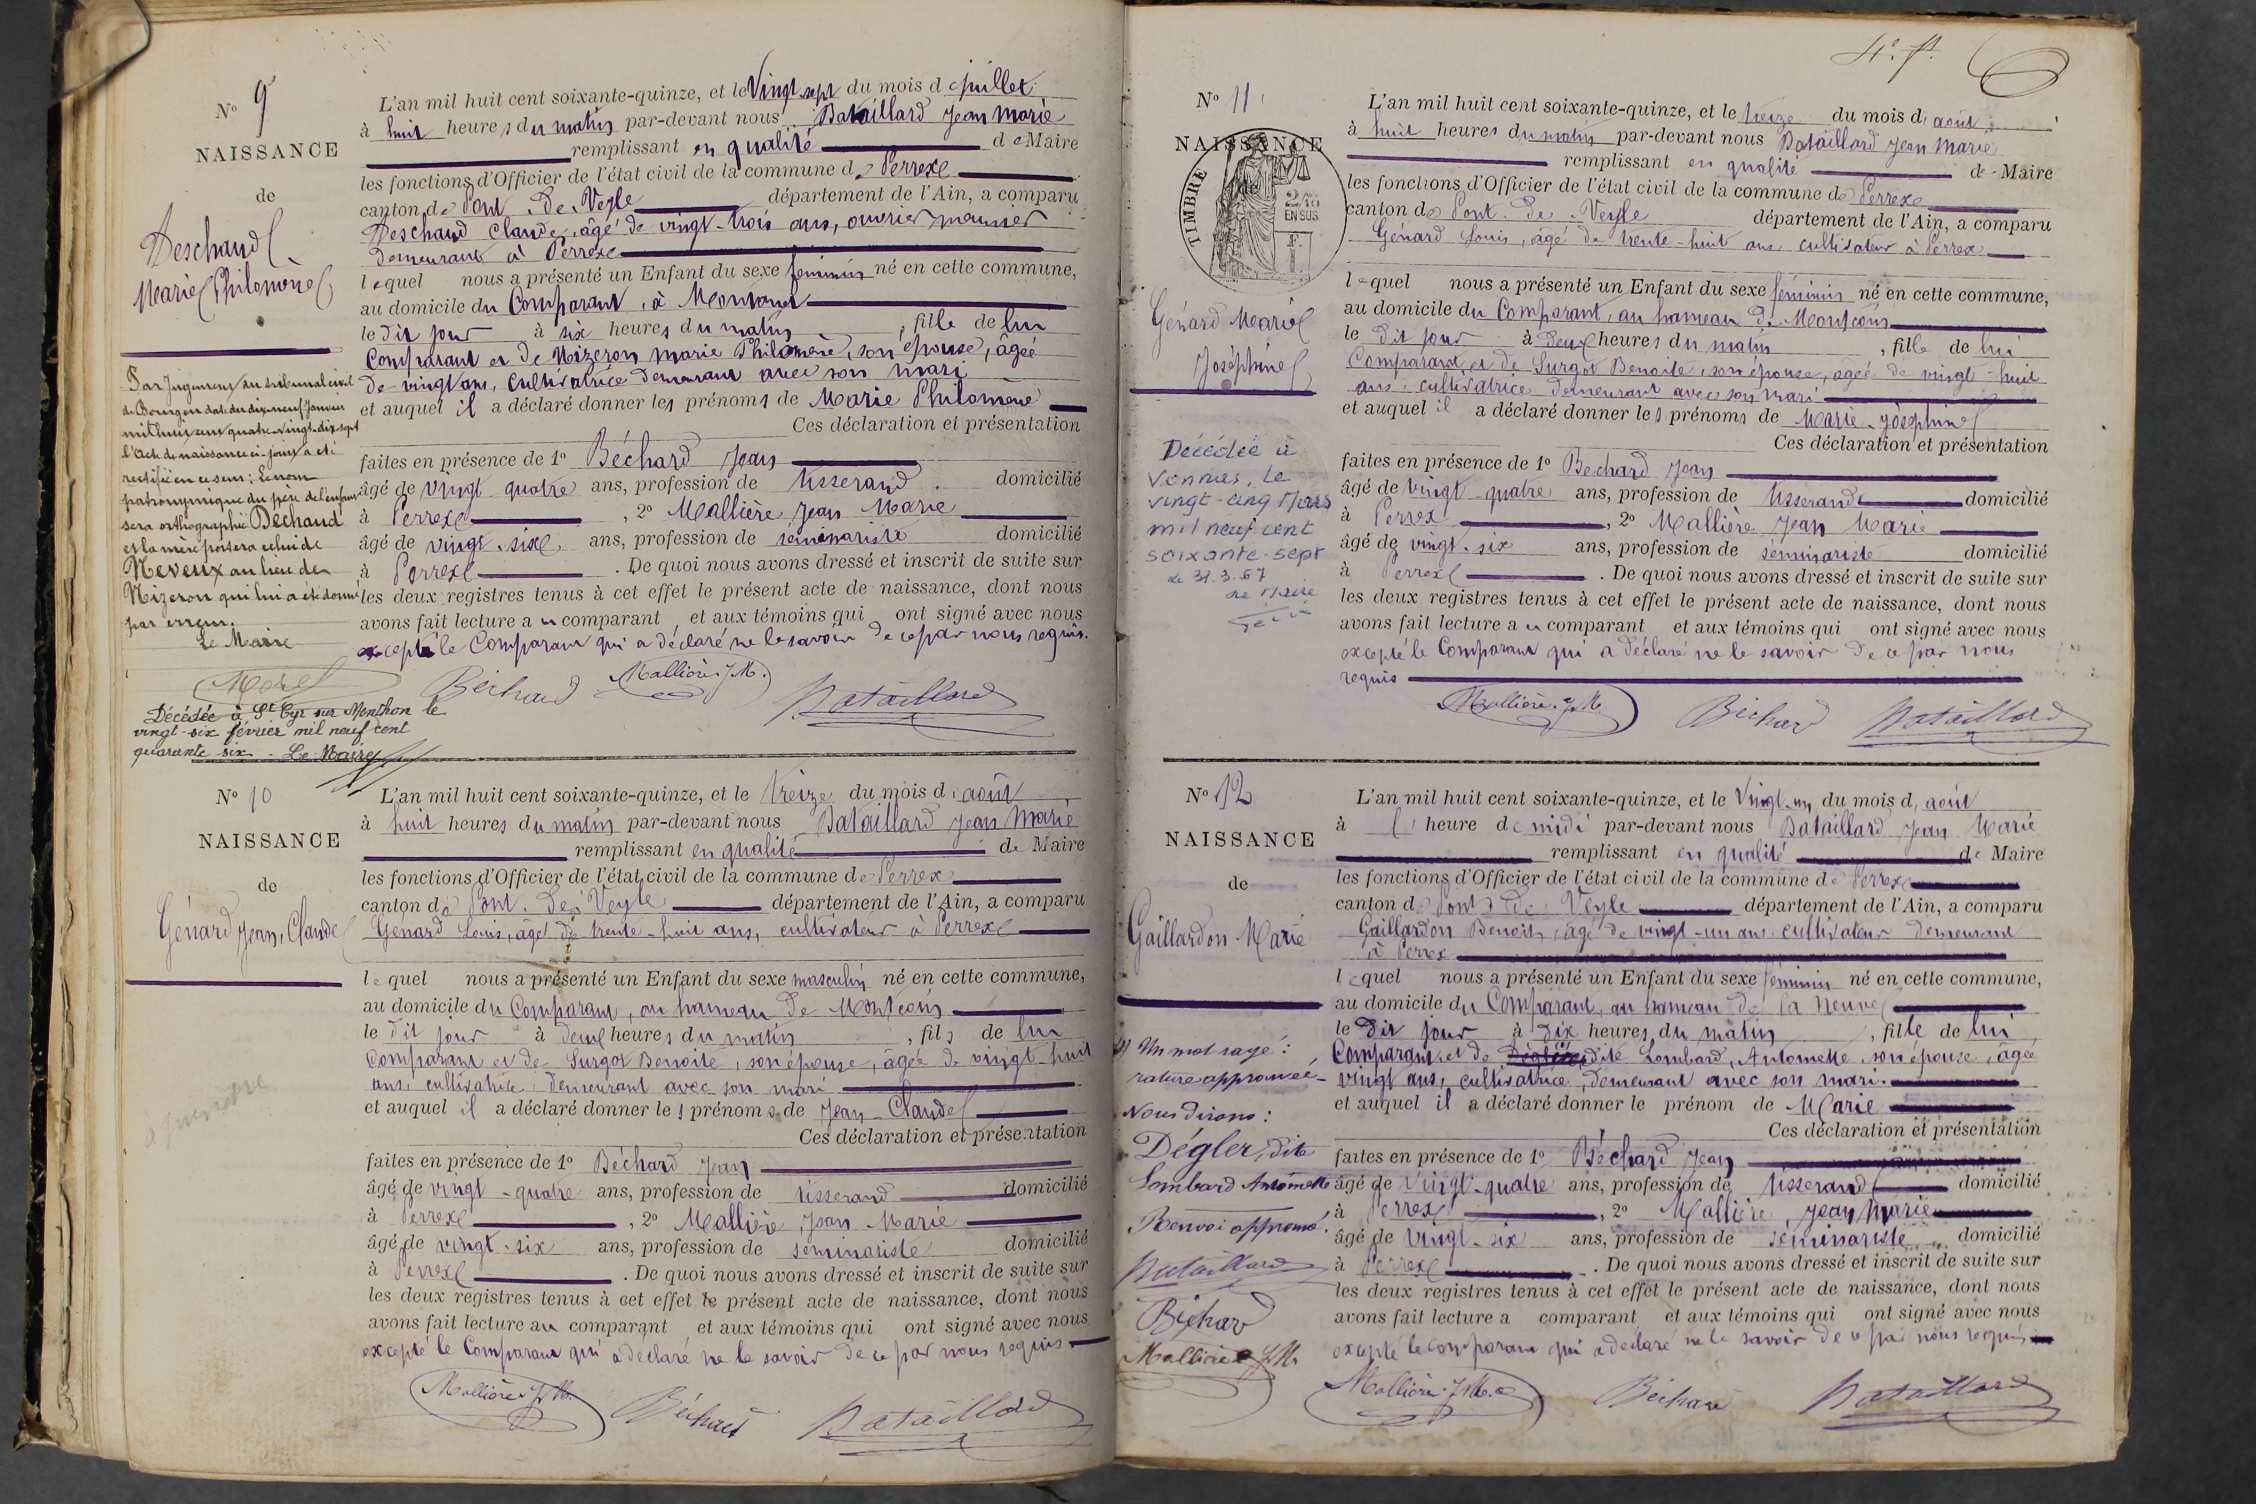 N° 9
NAISSANCE
de
Deschaud
Marie Philomène
Par Jugement du tribunal civil
de Bourg en date du dix-neuf Janvier
mil huit cent quatre-vingt-dix-sept
l'acte de naissance ci-joint a été
rectifié en ce sens : Le nom
patronymique du père de l'enfant
sera orthographié Dechaud
et la mère portera celui de
Neveux au lieu de
Nizeron qui lui a été donné
par erreur.
Le Maire
Morel
Décédée à St Cyr sur Menthon le
vingt-six février mil neuf cent
quarante six - Le Maire
L'an mil huit cent soixante-quinze, et le Vingt-sept du mois de Juillet
à huit heures du matin par-devant nous Bataillard Jean Marie
remplissant en qualité de Maire
les fonctions d'Officier de l'état civil de la commune de Perrex
canton de Pont-de-Veyle département de l'Ain, a comparu
Deschaud Claude, âgé de vingt-trois ans, ouvrier meunier
demeurant à Perrex
lequel nous a présenté un Enfant du sexe féminin né en cette commune,
au domicile du Comparant, à
le dit jour à six heures du matin, fille de lui
Comparant et de Nizeron Marie Philomène, son épouse, âgée
de vingt ans, cultivatrice demeurant avec son mari
et auquel il a déclaré donner les prénoms de Marie Philomène
Ces déclaration et présentation
faites en présence de 1° Béchard Jean
âgé de vingt-quatre ans, profession de tisserand domicilié
à Perrex, 2° Mallière Jean Marie
âgé de vingt-six ans, profession de séminariste domicilié
à Perrex. De quoi nous avons dressé et inscrit de suite sur
les deux registres tenus à cet effet le présent acte de naissance, dont nous
avons fait lecture au comparant, et aux témoins qui ont signé avec nous
excepté le Comparant qui a déclaré ne le savoir de ce par nous requis.
Béchard Mallière J.M. Bataillard
N° 10
NAISSANCE
de
Génard Jean, Claude
L'an mil huit cent soixante-quinze, et le treize du mois d'août
à huit heures du matin par-devant nous Bataillard Jean Marie
remplissant en qualité de Maire
les fonctions d'Officier de l'état civil de la commune de Perrex
canton de Pont-de-Veyle département de l'Ain, a comparu
Génard Louis, âgé de trente-huit ans, cultivateur à Perrex
lequel nous a présenté un Enfant du sexe masculin né en cette commune,
au domicile du Comparant, au hameau de Montcons
le dit jour à deux heures du matin, fils de lui
Comparant et de Surgot Benoite, son épouse, âgée de vingt-huit
ans, cultivatrice, demeurant avec son mari
et auquel il a déclaré donner les prénoms de Jean-Claude
Ces déclaration et présentation
faites en présence de 1° Béchard Jean
âgé de vingt-quatre ans, profession de tisserand domicilié
à Perrex, 2° Mallière Jean Marie
âgé de vingt-six ans, profession de séminariste domicilié
à Perrex. De quoi nous avons dressé et inscrit de suite sur
les deux registres tenus à cet effet le présent acte de naissance, dont nous
avons fait lecture au comparant et aux témoins qui ont signé avec nous
excepté le Comparant qui a déclaré ne le savoir de ce par nous requis
Mallière J.M. Béchard Bataillard
N° 11
NAISSANCE
de
TIMBRE
2/10
EN SUS
Génard Marie
Joséphine
Décédée à
Vonnas, le
vingt-cinq Mars
mil neuf cent
soixante-sept
le 31.3.67
Le Maire
L'an mil huit cent soixante-quinze, et le treize du mois d'août
à huit heures du matin par-devant nous Bataillard Jean Marie
remplissant en qualité de Maire
les fonctions d'Officier de l'état civil de la commune de Perrex
canton de Pont-de-Veyle département de l'Ain, a comparu
Génard Louis, âgé de trente-huit ans, cultivateur à Perrex
lequel nous a présenté un Enfant du sexe féminin né en cette commune,
au domicile du Comparant, au hameau de Montcons
le dit jour à deux heures du matin, fille de lui
Comparant et de Surgot Benoite, son épouse, âgée de vingt-huit
ans, cultivatrice demeurant avec son mari
et auquel il a déclaré donner les prénoms de Marie Joséphine
Ces déclaration et présentation
faites en présence de 1° Béchard Jean
âgé de vingt-quatre ans, profession de tisserand domicilié
à Perrex, 2° Mallière Jean Marie
âgé de vingt-six ans, profession de séminariste domicilié
à Perrex. De quoi nous avons dressé et inscrit de suite sur
les deux registres tenus à cet effet le présent acte de naissance, dont nous
avons fait lecture au comparant et aux témoins qui ont signé avec nous
excepté le Comparant qui a déclaré ne le savoir de ce par nous
requis
Mallière J.M. Béchard Bataillard
N° 12
NAISSANCE
de
Gaillardon Marie
Un mot rayé :
rature approuvée
Nous disons :
Dégler, dite
Lombard Antoinette
Renvoi approuvé.
Bataillard
Béchard
Mallière J.M.
L'an mil huit cent soixante-quinze, et le Vingt-un du mois d'août
à l'heure de midi par-devant nous Bataillard Jean Marie
remplissant en qualité de Maire
les fonctions d'Officier de l'état civil de la commune de Perrex
canton de Pont-de-Veyle département de l'Ain, a comparu
Gaillardon Benoit, âgé de vingt-un ans cultivateur demeurant
à Perrex
lequel nous a présenté un Enfant du sexe féminin né en cette commune,
au domicile du Comparant, au hameau de la Neuve
le dit jour à dix heures du matin, fille de lui
Comparant, et de dite Lombard, Antoinette, son épouse, âgée
vingt ans, cultivatrice, demeurant avec son mari.
et auquel il a déclaré donner le prénom de Marie
Ces déclaration et présentation
faites en présence de 1° Béchard Jean
âgé de vingt-quatre ans, profession de tisserand domicilié
à Perrex, 2° Mallière, Jean Marie
âgé de vingt-six ans, profession de séminariste domicilié
à Perrex. De quoi nous avons dressé et inscrit de suite sur
les deux registres tenus à cet effet le présent acte de naissance, dont nous
avons fait lecture a comparant et aux témoins qui ont signé avec nous
excepté le comparant qui a déclaré ne le savoir de ce par nous requis
Mallière J.M. Béchard Bataillard